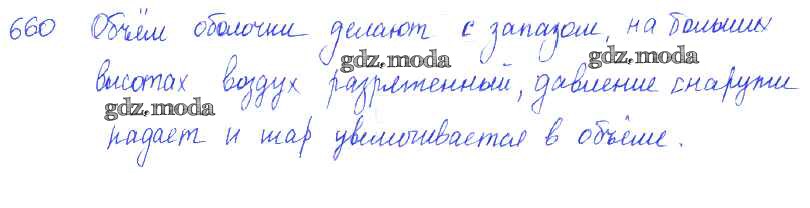 660 Объём оболочки делают с запазом, на больших
gdz.moda gdz.moda
высотах воздух разряженный, давление снаружи
gdz.moda
падает и шар увеличивается в объёме.